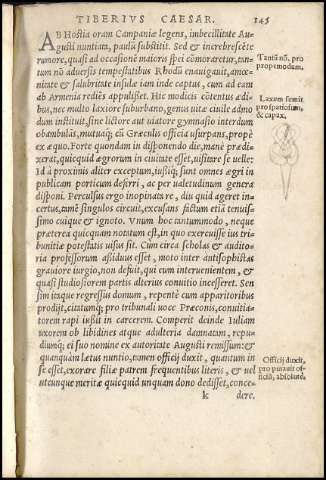 TIBERIUS CAESAR.
145
AB Hostia oram Campaniæ legens, imbecillitate Au-
gusti nuntiata, paulũ substitit. Sed & increbrescẽte
rumore, quasi ad occasionẽ maioris spei cõmoraretur, tan-
tum nõ aduersis tempestatibus Rhodũ enauigauit, amœ-
nitate & salubritate insulæ iam inde captus, cum ad eam
ab Armenia rediẽs appulisset. Hic modicis cõtentus ædi-
bus, nec multo laxiore suburbano, genus uitæ ciuile admo
dum instituit, sine lictore aut uiatore gymnasio interdum
obambulans, mutuaq; cũ Græculis officia usurpans, prope
ex æquo. Forte quondam in disponendo die, manè prædi-
xerat, quicquid ægrorum in ciuitate esset, uisitare se uelle:
Id à proximis aliter exceptum, iussiq; sunt omnes ægri in
publicam porticum deferri, ac per ualetudinum genera
disponi. Perculsus ergo inopinata re, diu quid ageret in-
certus, tamẽ singulos circuit, excusans factum etiã tenuis-
simo cuiq; & ignoto. Vnum hoc tantummodo, neque
præterea quicquam notatum est, in quo exercuisse ius tri-
bunitiæ potestatis uisus sit. Cum circa scholas & audito-
ria professorum assiduus esset, moto inter antisophistas
grauiore iurgio, non defuit, qui eum interuenientem, &
quasi studiosiorem partis alterius conuitio incesseret. Sen
sim itaque regressus domum, repentè cum apparitoribus
prodijt, citatumq; pro tribunali uoce Præconis, conuitia-
torem rapi iussit in carcerem. Comperit deinde Iuliam
uxorem ob libidines atque adulteria damnatam, repu-
diumq; ei suo nomine ex autoritate Augusti remissum: &
quanquàm lætus nuntio, tamen officij duxit, quantum in
se esset, exorare filiæ patrem frequentibus literis, & uel
utcunque meritæ quicquid unquam dono dedisset, conce-
k
dere.
Tantũ nõ, pro
propemodum.
Laxum
pro spatiosum,
& capax,
Officij duxit,
pro putauit of-
ficiũ, absolutè.